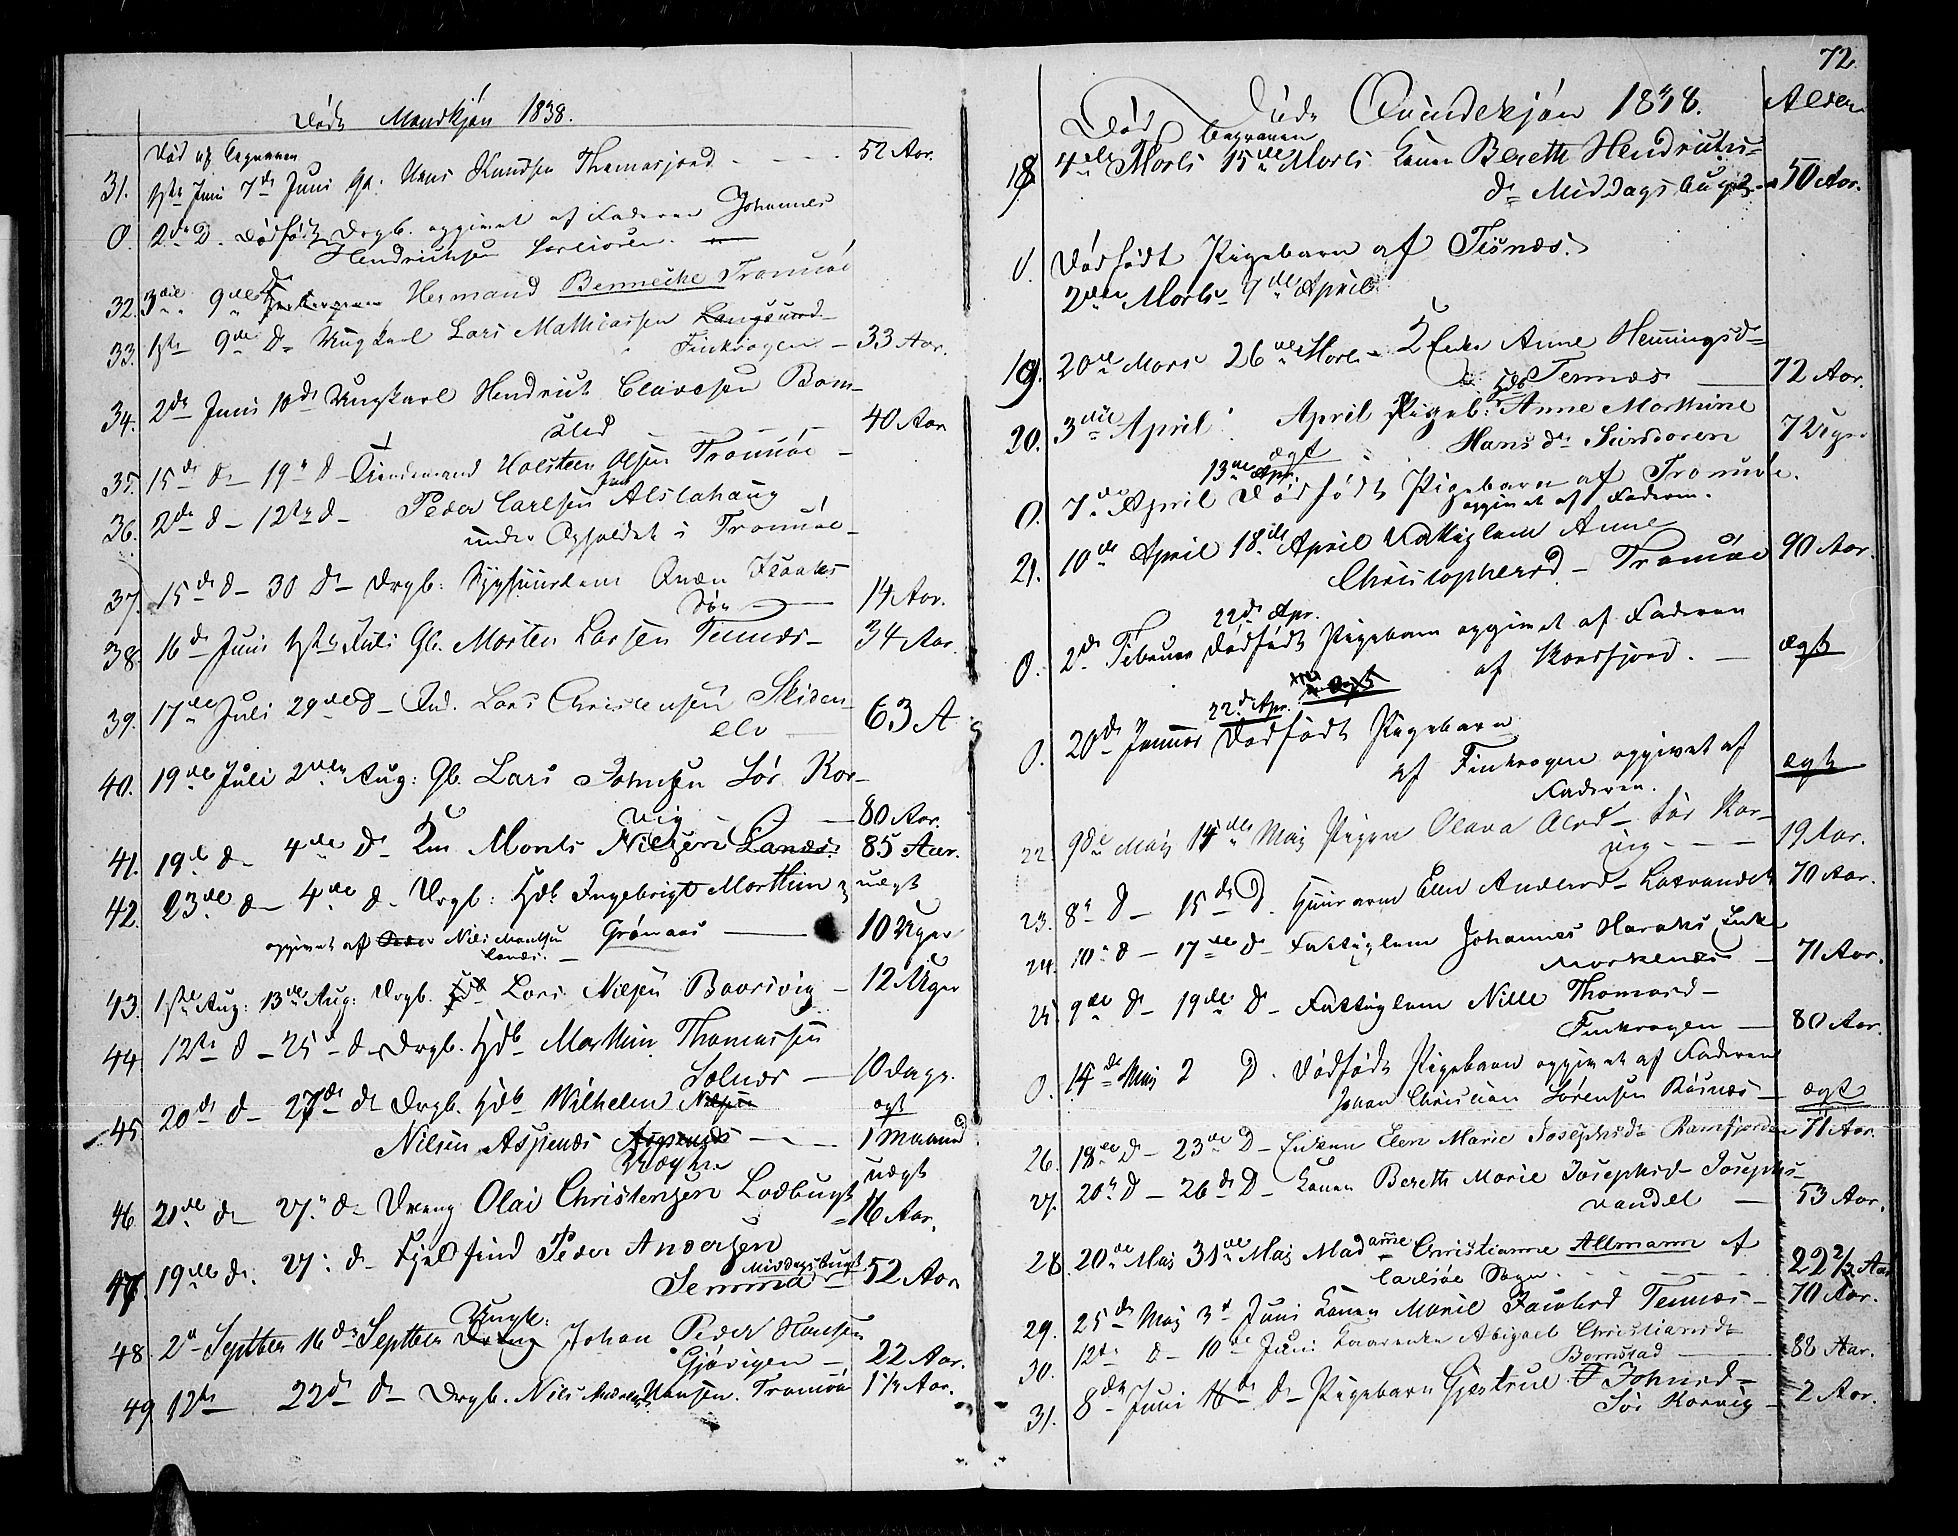 Døde Mandkjøn 1838.
Død og Begraven
31. 1ste Juni 7de Juni Hans Knudsen Thomasjord 52 Aar.
0. 2de D. Dødfødt Drgb. opgivet af Faderen Johannes
Hendrichsen
32. 3die 9de Hermand Bennecke Tromsøe
33. 1ste 9de D. Ungkarl Lars Mathiassen Langsund
Finkrogen 33 Aar.
34. 2de Juni 10de Ungkarl Hendrich Clavesen Bom-
stad 40 Aar
35. 15de D. 19de D. Holsteen Olsen Tromsøe
36. 2de D. 12te D. Peder Carlsen Alstahaug
under Opholdet i Tromsøe
37. 15de D. 30 D. Drgb. Qvæn Isaaks
Søn 14 Aar.
38. 16de Juni 1ste Juli Gl. Morten Larsen Tennes 34 Aar.
39. 17de Juli 29de D. Ind. Lars Christensen Skiden-
elv 63 A
40. 19de Juli 2den Aug: Gb. Lars Johnsen Sør Kor-
vig 80 Aar.
41. 19de D. 4de D. Monts Nielsen Lanes. 85 Aar.
42. 23de D. 4de D. Drgb: Hdb. Ingebrigt Morthin uægt
opgivet af Nils Montsen Grønaas 10 Uger
Lanes.
43. 1ste Aug: 13de Aug: Drgb. Lars Nielsen Baarsvig 12 Uger
44. 12te D. 25de D. Drgb. Hdb. Morthin Thomassen
Solnes 10 Dage.
45. 20de D. 27de D. Drgb. Hdb. Wilhelm Nielsen ægt
Nilsen Aspenæs Aspenæs 1 Maaned
uægt
46. 21de D. 27. D. Dreng Olai Christensen Lodbugt 16 Aar.
47. 19de D. 27. D. Fjeldfind Peder Andersen
Semma Middagsbugt 52 Aar
48. 2de Septber 16de Septber Dreng Ungk: Johan Peder Hansen
Gjøvigen 22 Aar.
49 12te 22de D. Drgb. Nils Andreas Hansen. Tromsøe 1½ Aar.
72
Døde Qvindekjøn 1838. Alder
Død Begraven
18. 4de Marts 15de Marts Konen Bereth Hendrichs-
dr Middagsbugt 50 Aar.
0 Dødfødt Pigebarn af Tisnæs.
2den Marts 7de April
19. 20de Mars 26de Marts Enke Anne Henningsd
Tennæs 72 Aar.
20. 3die April April Pigeb: Anne Marthine
Hansdr 7 Uger
ægt
13de Apr.
0. 7de April Dødfødt Pigebarn af Tromsøe.
opgivet af Faderen.
21. 10de April 18de April Fattiglem Anne
Christophersd Tromsøe 90 Aar.
22de Apr.
0. 2de Februar Dødfødt Pigebarn opgivet af Faderen
af Korsfjord. ægt
22de Apr.
0. 20de Januar Dødfødt Pigebarn
af Finkrogen opgivet af
Faderen. ægt
22. 9de Maj 14de Maj Pigen Olava Olsd Sør Kor-
vig 19 Aar.
23. 8de D 15de D. Huusarm Elen Andersd Laxvandet 70 Aar.
24. 10de D 17de D Fattiglem Johannes Haraks Enke
Morkenæs 71 Aar.
25. 9de D 19de D Fattiglem Nille Thomasd
Finkrogen 80 Aar.
0. 14de Maj 2 D. Dødfødt Pigebarn opgivet af Faderen
Johan Christian Sørensen ægt
26. 18de D 23de D Enken Elen Marie Josephsdr Ramfjorden 71 Aar.
27. 20de D 26de D Konen Bereth Marie Josephsd Josephs-
vandet 53 Aar.
28. 20de Maj 31de Maj Madame Christianne Allmann af
Carlsøe Sogn. 22 2/3 Aar
29. 25de Maj 3de Juni Konen Marie Jacobsd Tennæs 70 Aar.
30. 12te D 10de Juni Abigael Christiansdr
Bomstad 88 Aar.
31. 8de Juni D Pigebarn Gjertrue Johnsd
Sør Korvig 2 Aar.